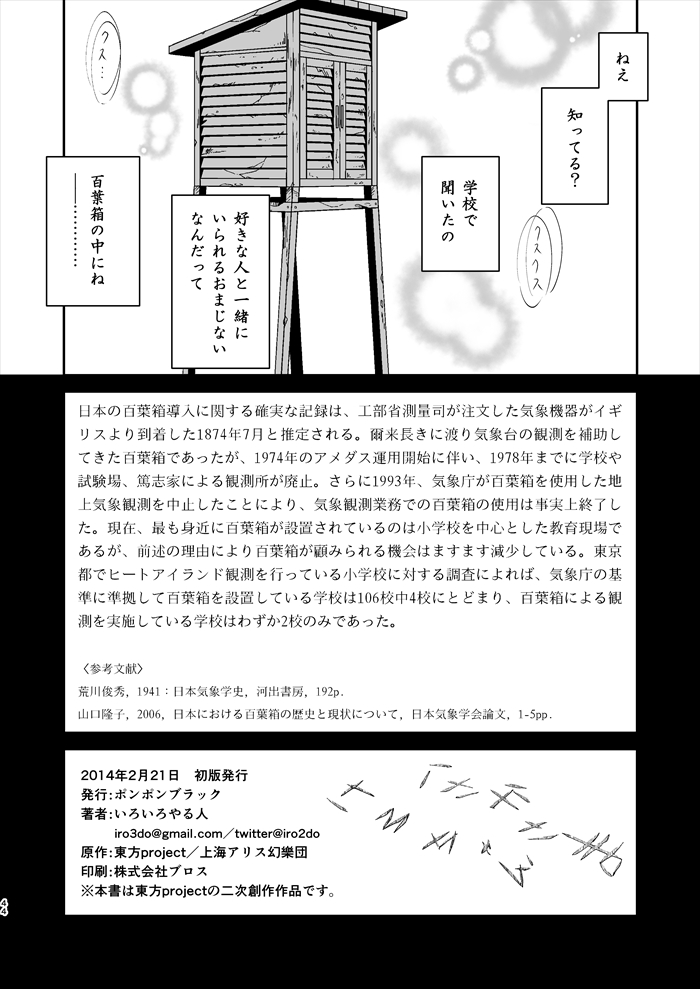 ねえ
知ってる?
クスクス
学校で
聞いたの
好きな人と一緒に
いられるおまじない
なんだって
クス…
百葉箱の中にね
――…………
日本の百葉箱導入に関する確実な記録は、工部省測量司が注文した気象機器がイギ
リスより到着した1874年7月と推定される。爾来長きに渡り気象台の観測を補助し
てきた百葉箱であったが、1974年のアメダス運用開始に伴い、1978年までに学校や
試験場、篤志家による観測所が廃止。さらに1993年、気象庁が百葉箱を使用した地
上気象観測を中止したことにより、気象観測業務での百葉箱の使用は事実上終了し
た。現在、最も身近に百葉箱が設置されているのは小学校を中心とした教育現場で
あるが、前述の理由により百葉箱が顧みられる機会はますます減少している。東京
都でヒートアイランド観測を行っている小学校に対する調査によれば、気象庁の基
準に準拠して百葉箱を設置している学校は106校中4校にとどまり、百葉箱による観
測を実施している学校はわずか2校のみであった。
〈参考文献〉
荒川俊秀，1941：日本気象学史，河出書房，192p.
山口隆子，2006，日本における百葉箱の歴史と現状について，日本気象学会論文，1-5pp.
2014年2月21日　初版発行
発行：ポンポンブラック
著者：いろいろやる人
iro3do@gmail.com／twitter@iro2do
原作：東方project／上海アリス幻樂団
印刷：株式会社ブロス
※本書は東方projectの二次創作作品です。
44